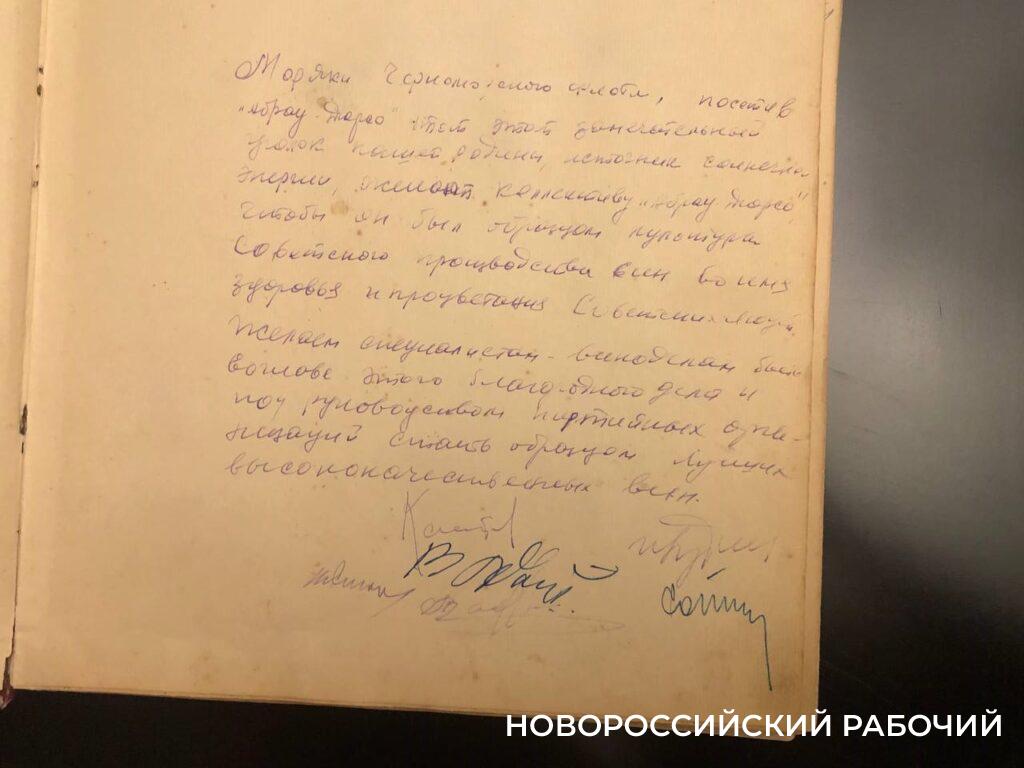 Моряки Черноморского флота, посетив
"Абрау-Дюрсо" этот замечательный
уголок нашей Родины, источник солнечной
энергии, желают коллективу "Абрау Дюрсо"
чтобы он был образцом культуры
Советского производства вин во имя
здоровья и процветания Советских людей.
Желаем специалистам-виноделам быть
во главе этого благородного дела и
под руководством партийных орга-
низаций стать образцом лучших
высококачественных вин.
НОВОРОССИЙСКИЙ РАБОЧИЙ